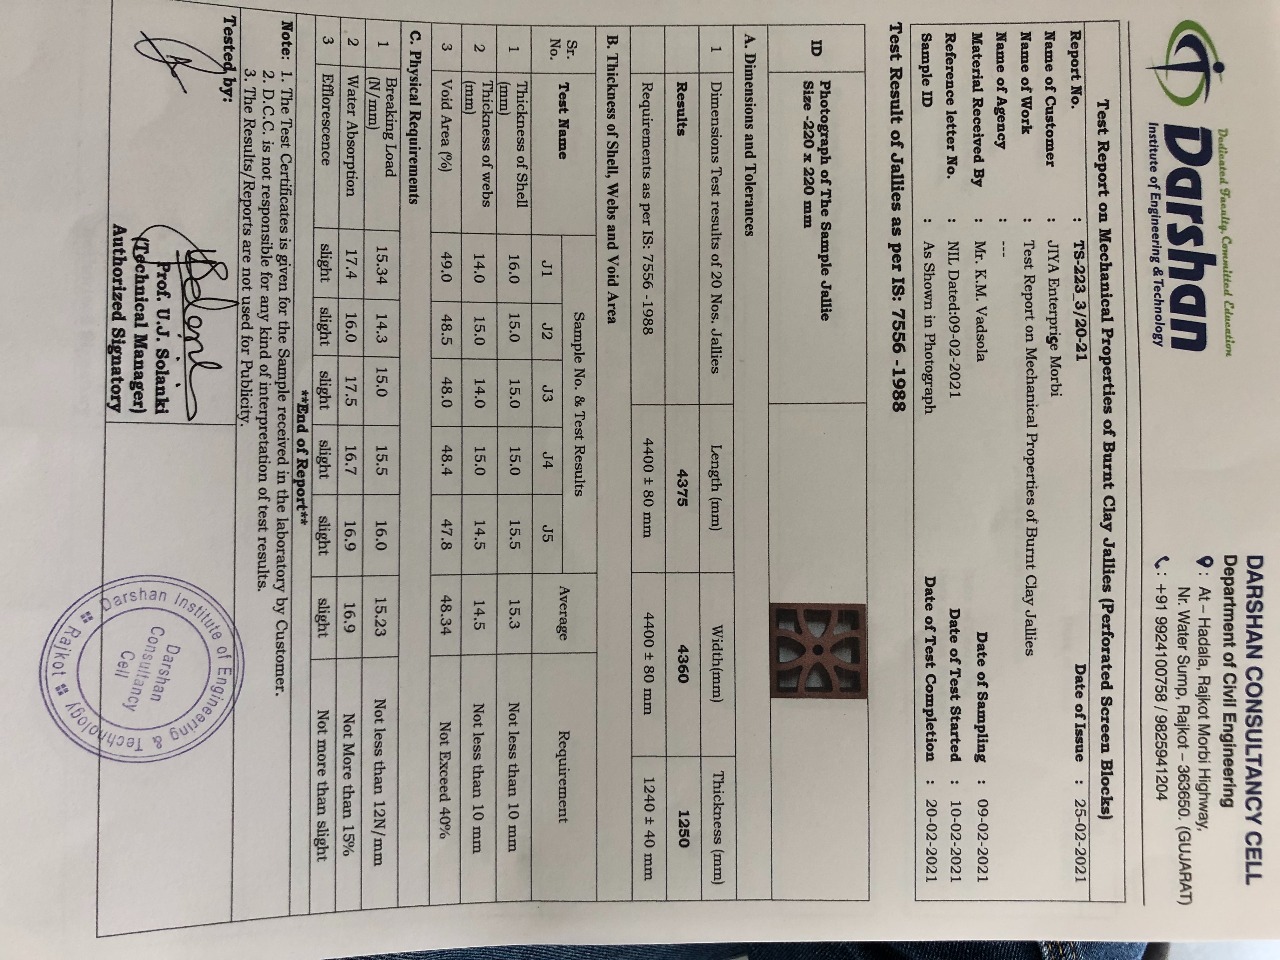 Dedicated Faculty, Committed Education
Darshan
Institute of Engineering & Technology
DARSHAN CONSULTANCY CELL
Department of Civil Engineering
: At – Hadala, Rajkot Morbi Highway,
Nr. Water Sump, Rajkot – 363650. (GUJARAT)
: +91 9924100758 / 9825941204
Test Report on Mechanical Properties of Burnt Clay Jallies (Perforated Screen Blocks)
Report No. : TS-223_3/20-21 Date of Issue : 25-02-2021
Name of Customer : JIYA Enterprise Morbi
Name of Work : Test Report on Mechanical Properties of Burnt Clay Jallies
Name of Agency : ---
Material Received By : Mr. K.M. Vadsola Date of Sampling : 09-02-2021
Reference letter No. : NIL Dated:09-02-2021 Date of Test Started : 10-02-2021
Sample ID : As Shown in Photograph Date of Test Completion : 20-02-2021
Test Result of Jallies as per IS: 7556 -1988
ID Photograph of The Sample Jallie
Size -220 x 220 mm
A. Dimensions and Tolerances
1 Dimensions Test results of 20 Nos. Jallies Length (mm) Width(mm) Thickness (mm)
Results 4375 4360 1250
Requirements as per IS: 7556 -1988 4400 ± 80 mm 4400 ± 80 mm 1240 ± 40 mm
B. Thickness of Shell, Webs and Void Area
Sr. No. Test Name Sample No. & Test Results Average Requirement
J1 J2 J3 J4 J5
1 Thickness of Shell (mm) 16.0 15.0 15.0 15.0 15.5 15.3 Not less than 10 mm
2 Thickness of webs (mm) 14.0 15.0 14.0 15.0 14.5 14.5 Not less than 10 mm
3 Void Area (%) 49.0 48.5 48.0 48.4 47.8 48.34 Not Exceed 40%
C. Physical Requirements
1 Breaking Load (N/mm) 15.34 14.3 15.0 15.5 16.0 15.23 Not less than 12N/mm
2 Water Absorption 17.4 16.0 17.5 16.7 16.9 16.9 Not More than 15%
3 Efflorescence slight slight slight slight slight slight Not more than slight
**End of Report**
Note: 1. The Test Certificates is given for the Sample received in the laboratory by Customer.
2. D.C.C. is not responsible for any kind of interpretation of test results.
3. The Results/Reports are not used for Publicity.
Tested by:
Prof. U.J. Solanki
(Technical Manager)
Authorized Signatory
Darshan Institute of Engineering & Technology
Rajkot
Darshan
Consultancy
Cell